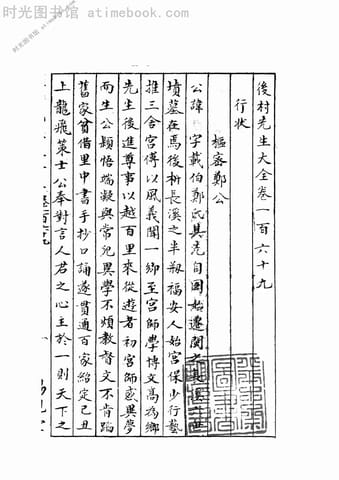 时光图书馆 atimebook.com
後村先生大全卷一百六十九
行狀
樞密鄭公
公諱 字載伯鄭氏其先自固始遷閩
墳墓在焉後析長溪之半剏福安人始宮保少行藝
推三舍宮傅以風義聞一鄉至宮師學博文高為鄉
先生後進尊事以越百里來從遊者初宮師感異夢
而生公穎悟端凝與常兒異學不煩教督文不肯蹈
舊家貧借里中書手抄口誦遂貫通百家紹定己丑
上龍飛策士公奉對言人君之心主於一則天下之